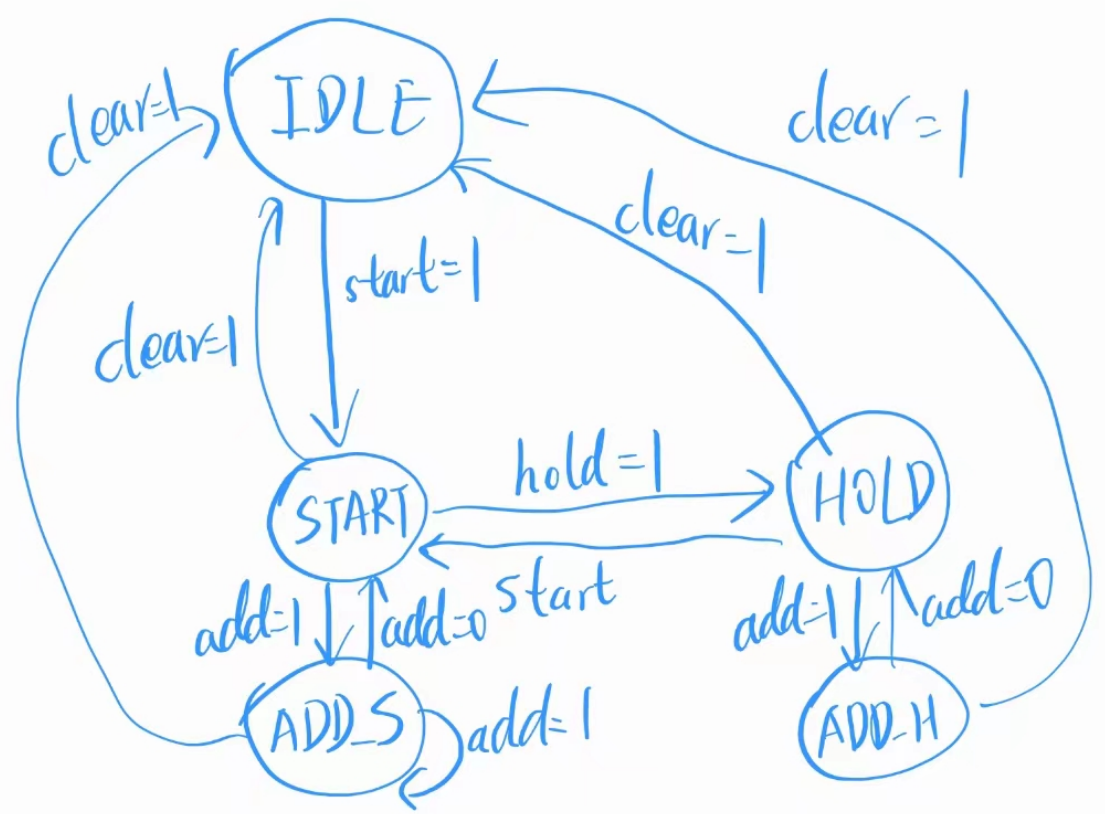 IDLE
clear=1
clear=1
clear=1
start=1
clear=1
hold=1
START
HOLD
start
add=1
add=0
add=1
add=0
ADD_S
add=1
ADD_H